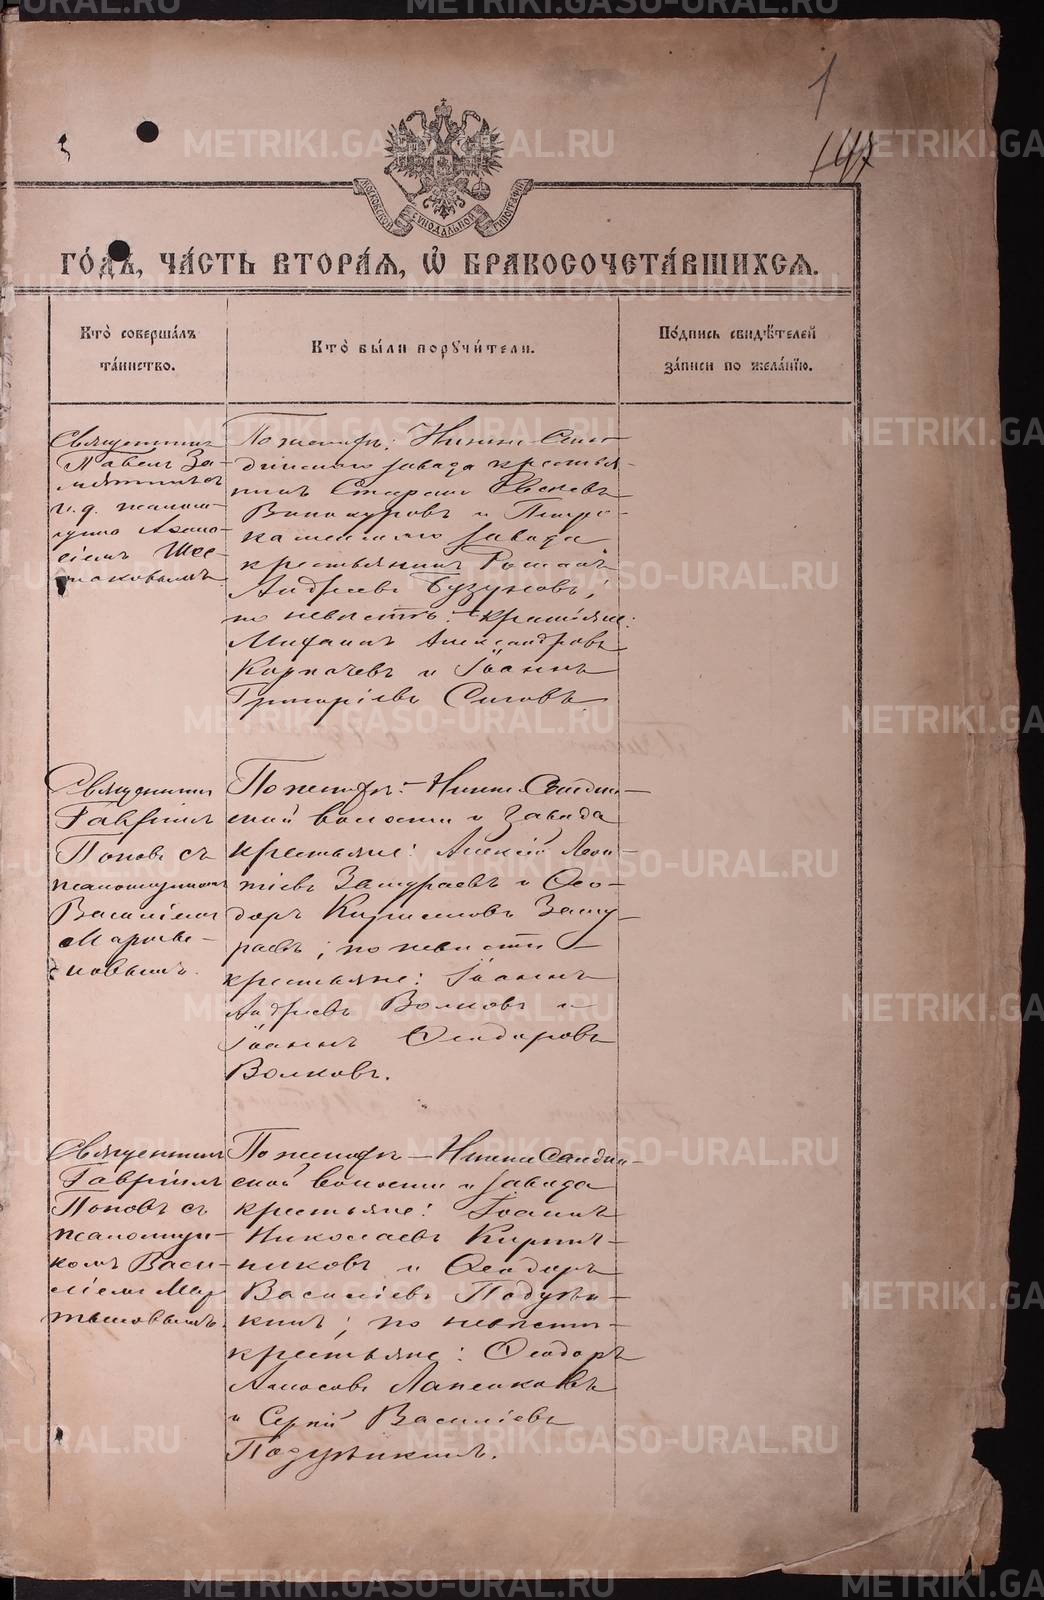 1
147
МОСКОВСКОЙ СѴНОДАЛЬНОЙ ТИПОГРАФІИ
ГО́ДЪ, ЧА́СТЬ ВТОРА́Я, Ѡ҆ БРАКОСОЧЕТА́ВШИХСѦ.
Кто̀ соверша́лъ
та́инство.
Кто̀ бы́ли порꙋчи́тели.
По́дпись свидѣ́телей
за́писи по жела́нїю.
Священникъ
Павелъ За-
мятнинъ
и. д. псалом-
щика Афана-
сіемъ Шес-
таковымъ
По женихѣ: Нижне Синя-
чихинского завода крестья-
нинъ
Винокуровъ и Петро-
каменского завода
крестьянинъ Романъ
Андреевъ Бузуновъ;
по невѣстѣ: крестьяне:
Михаилъ Александровъ
Карпачевъ и Іоаннъ
Григоріевъ Сиговъ
Священникъ
Гавріилъ
Поповъ съ
псаломщикомъ
Василіемъ
Мартье-
новымъ.
По женихѣ: Нижне Салдин-
ской волости и завода
крестьяне: Алексій Леон-
тіевъ Замураевъ и Ѳео-
доръ Заму-
раевъ; по невѣстѣ
крестьяне: Іоаннъ
Андреевъ Волковъ и
Іоаннъ Ѳеодоровъ
Волковъ.
Священникъ
Гавріилъ
Поповъ съ
псаломщи-
комъ Васи-
ліемъ Мар
тьяновымъ.
По женихѣ – Нижне Салдин-
ской волости и завода
крестьяне: Іоаннъ
Николаевъ Кирпи-
никовъ и Ѳеодоръ
Василіевъ Подузи-
кинъ; по невѣстѣ -
крестьяне: Ѳеодоръ
Амосовъ Лапенковъ
и Сергій Василіевъ
METRIKI.GASO-URAL.RU